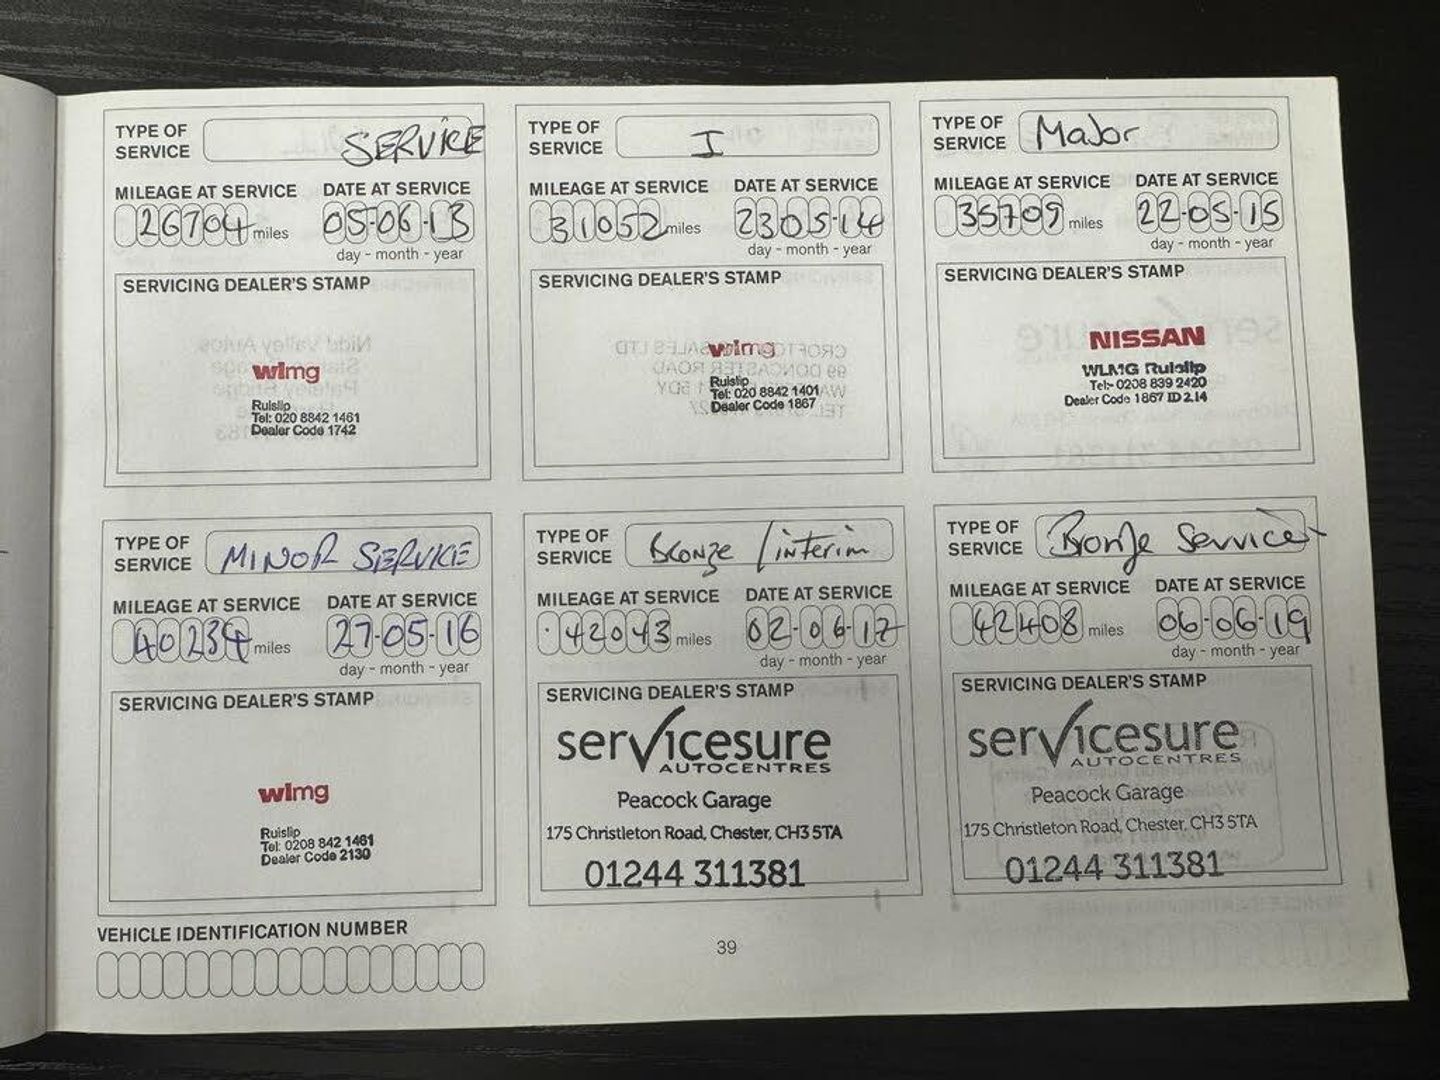 TYPE OF SERVICE SERVICE
MILEAGE AT SERVICE DATE AT SERVICE
26704 miles 05-06-13
day - month - year
SERVICING DEALER'S STAMP
wlmg
Ruislip
Tel: 020 8842 1461
Dealer Code 1742
TYPE OF SERVICE I
MILEAGE AT SERVICE DATE AT SERVICE
31052 miles 23 05-14
day - month - year
SERVICING DEALER'S STAMP
wlmg
Ruislip
Tel: 020 8842 1401
Dealer Code 1867
TYPE OF SERVICE Major
MILEAGE AT SERVICE DATE AT SERVICE
35709 miles 22-05-15
day - month - year
SERVICING DEALER'S STAMP
NISSAN
WLMG Ruislip
Tel:- 0208 839 2420
Dealer Code 1867 ID 2.14
TYPE OF SERVICE MINOR SERVICE
MILEAGE AT SERVICE DATE AT SERVICE
40234 miles 27-05-16
day - month - year
SERVICING DEALER'S STAMP
wlmg
Ruislip
Tel: 0208 842 1461
Dealer Code 2130
TYPE OF SERVICE Bronze / interim
MILEAGE AT SERVICE DATE AT SERVICE
42043 miles 02-06-17
day - month - year
SERVICING DEALER'S STAMP
servicesure
AUTOCENTRES
Peacock Garage
175 Christleton Road, Chester, CH3 5TA
01244 311381
TYPE OF SERVICE Bronze Service
MILEAGE AT SERVICE DATE AT SERVICE
42408 miles 06-06-19
day - month - year
SERVICING DEALER'S STAMP
servicesure
AUTOCENTRES
Peacock Garage
175 Christleton Road, Chester, CH3 5TA
01244 311381
VEHICLE IDENTIFICATION NUMBER
39